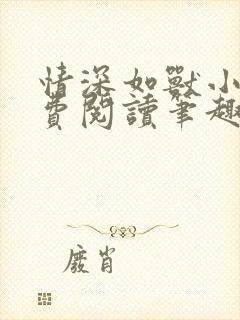 情深如獸小
費閱讀筆趣
廢肖